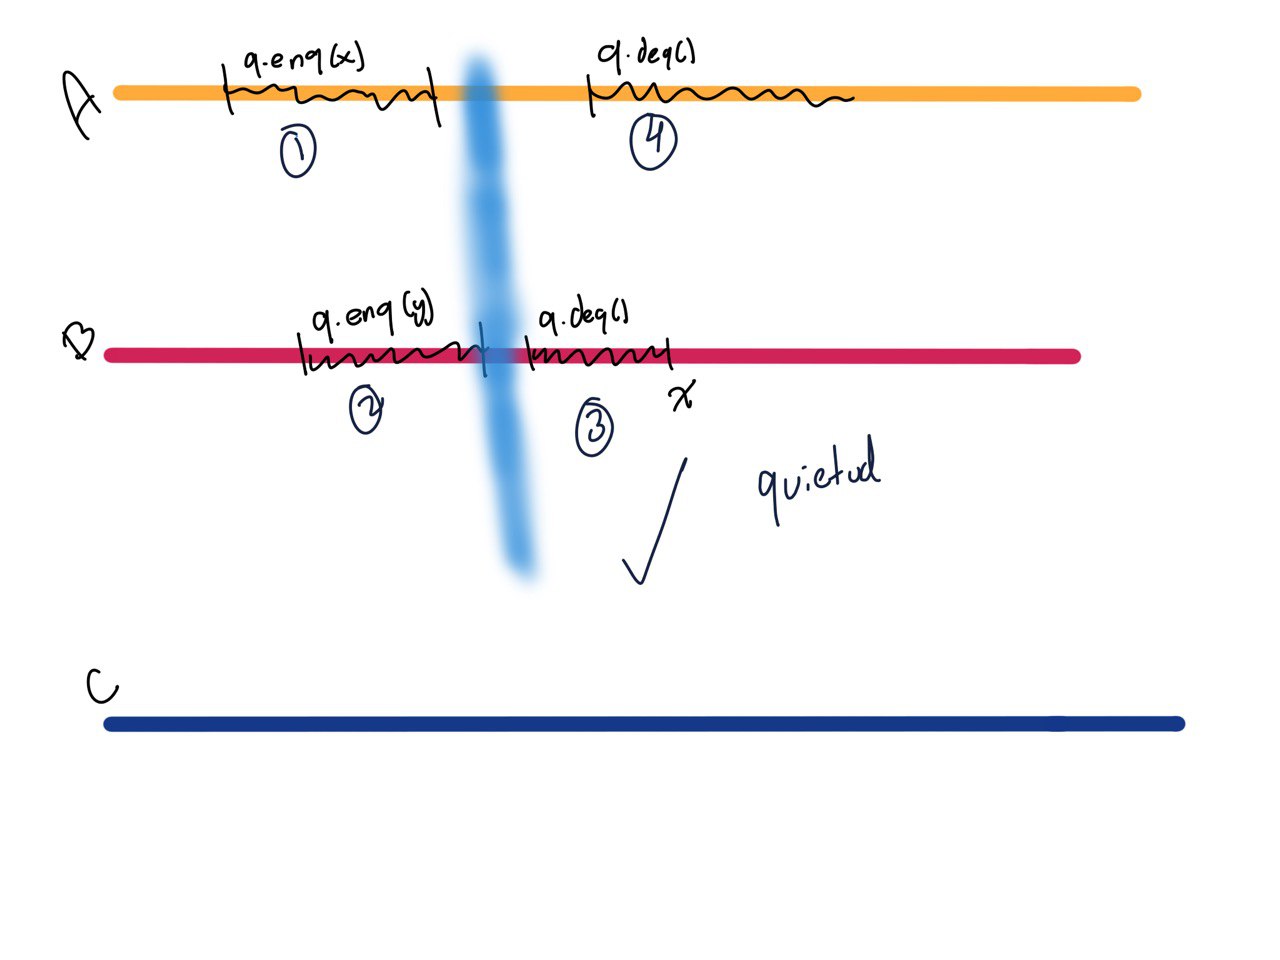 A
q.enq(x)
q.deq()
1
4
B
q.enq(y)
q.deq()
2
3
x
quietud
C